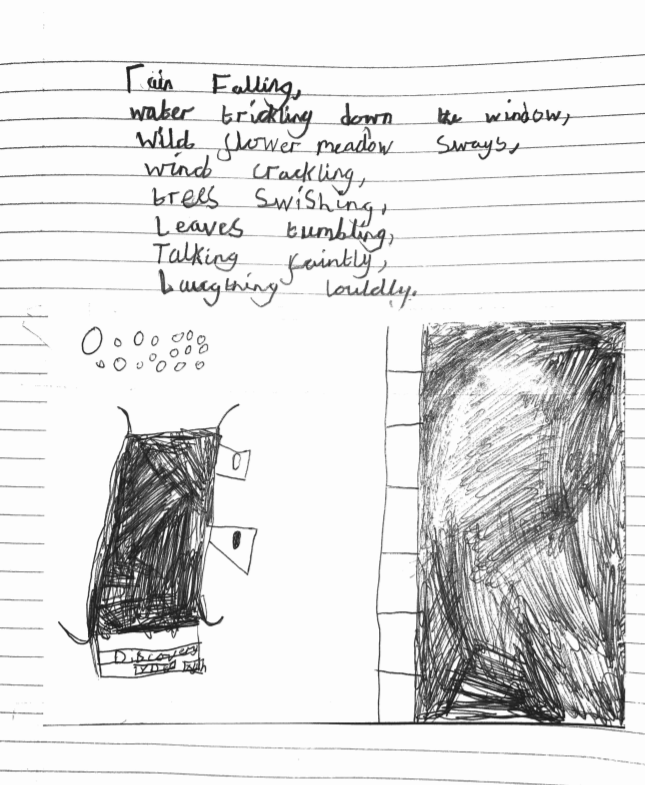 rain Falling,
water trickling down the window,
Wild flower meadow sways,
wind crackling,
trees swishing,
Leaves tumbling,
Talking faintly,
Laugthing louldly.
Discovery